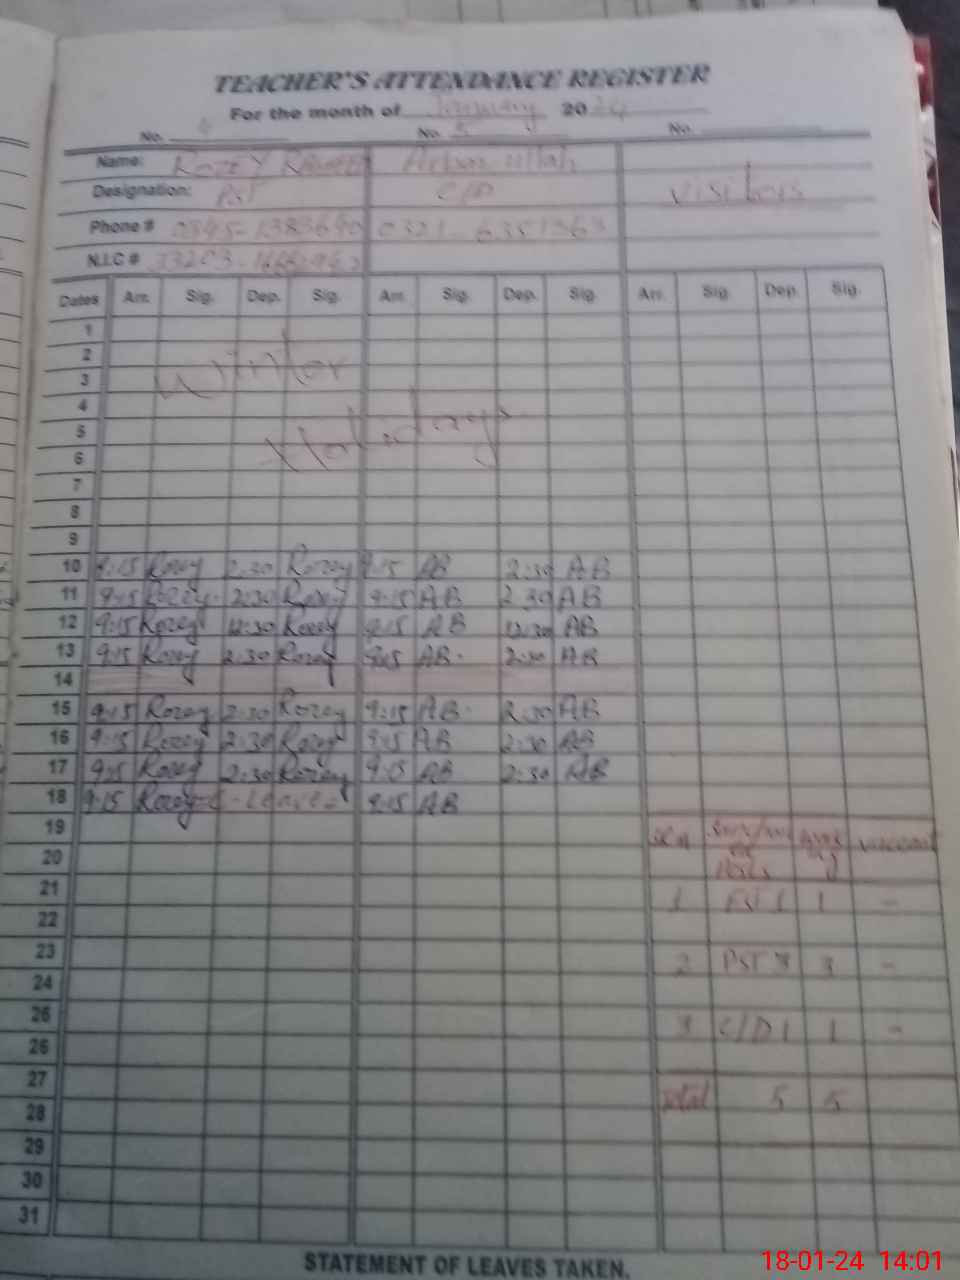 TEACHER'S ATTENDANCE REGISTER
For the month of January 2024
No. 4 No. 5 No.
Name: ROZEY
Designation: PST C/D Visitors
Phone # 0321
N.I.C #
Dates Arr. Sig. Dep. Sig. Arr. Sig. Dep. Sig. Arr. Sig. Dep. Sig.
1
2 Winter
3
4
5 Holidays
6
7
8
9
10 9:15 Rozey 2:30 Rozey 9:15 AB 2:30 AB
11 9:15 Rozey 2:30 Rozey 9:15 AB 2:30 AB
12 9:15 Rozey 12:30 Rozey 9:15 AB 12:30 AB
13 9:15 Rozey 2:30 Rozey 9:15 AB 2:30 AB
14
15 9:15 Rozey 2:30 Rozey 9:15 AB 2:30 AB
16 9:15 Rozey 2:30 Rozey 9:15 AB 2:30 AB
17 9:15 Rozey 2:30 Rozey 9:15 AB 2:30 AB
18 9:15 Rozey C-Leave 9:15 AB
19
20 Posts
21 1 1 1 -
22
23 2 PST 3 3 -
24
25 3 C/D 1 1 -
26
27 Total 5 5
28
29
30
31
STATEMENT OF LEAVES TAKEN.
18-01-24 14:01